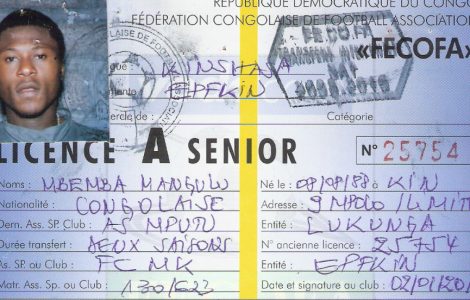 REPUBLIQUE DEMOCRATIQUE DU CONGO
FÉDÉRATION CONGOLAISE DE FOOTBALL ASSOCIATION
FECOFA «FECOFA»
KINSHASA
EPFKIN
Cercle de : Catégorie
LICENCE A SENIOR N° 25754
Noms : MBEMBA MANGULU Né le : 08/08/88 à KIN
Nationalité : CONGOLAISE Adresse :
Dern. Ass. SP. Club : AS MPUTU Entité : LUKUNGA
Durée transfert : DEUX SAISONS N° ancienne licence : 25754
As. SP. ou Club : FC MK Entité : EPFKIN
Matr. Ass. SP. ou Club : 130/622 Date et signature au club : 02/01/20